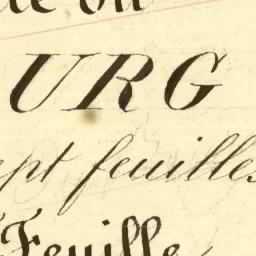 URG
ept feuilles
Feuille